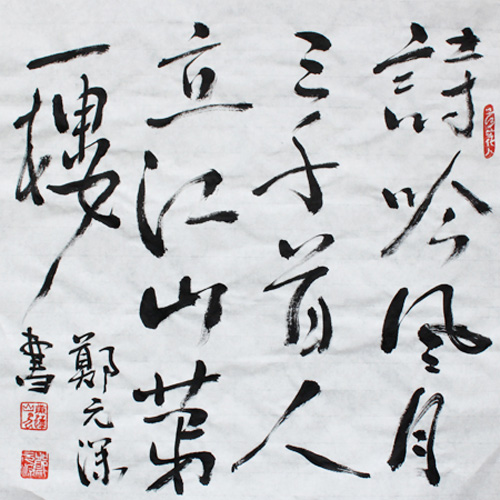 詩吟風月
三千首人
立江山第
一樓
鄭元深
書